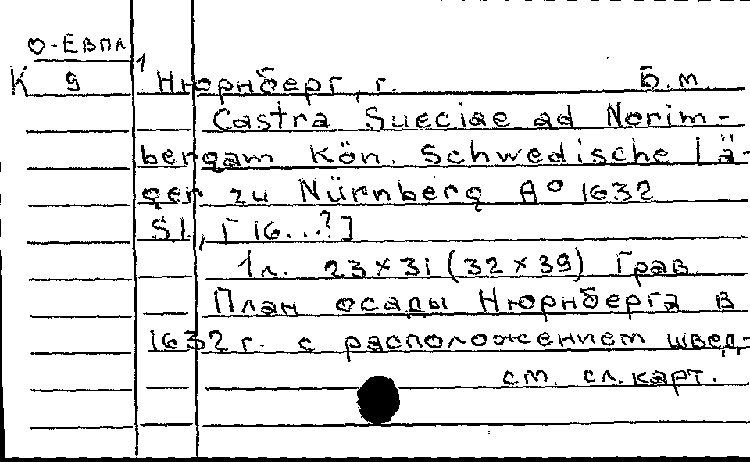 О-ЕВПЛ
К 9
1 Нюрнберг, г. Б.м.
Castra Sueciae ad Norim-
bergam Kön. Schwedische Lä-
ger zu Nürnberg Aº 1632
S.l., [16...?]
1 л. 23×31 (32×39) Грав
План осады Нюрнберга в
1632 г. с расположением швед-
см. сл. карт.